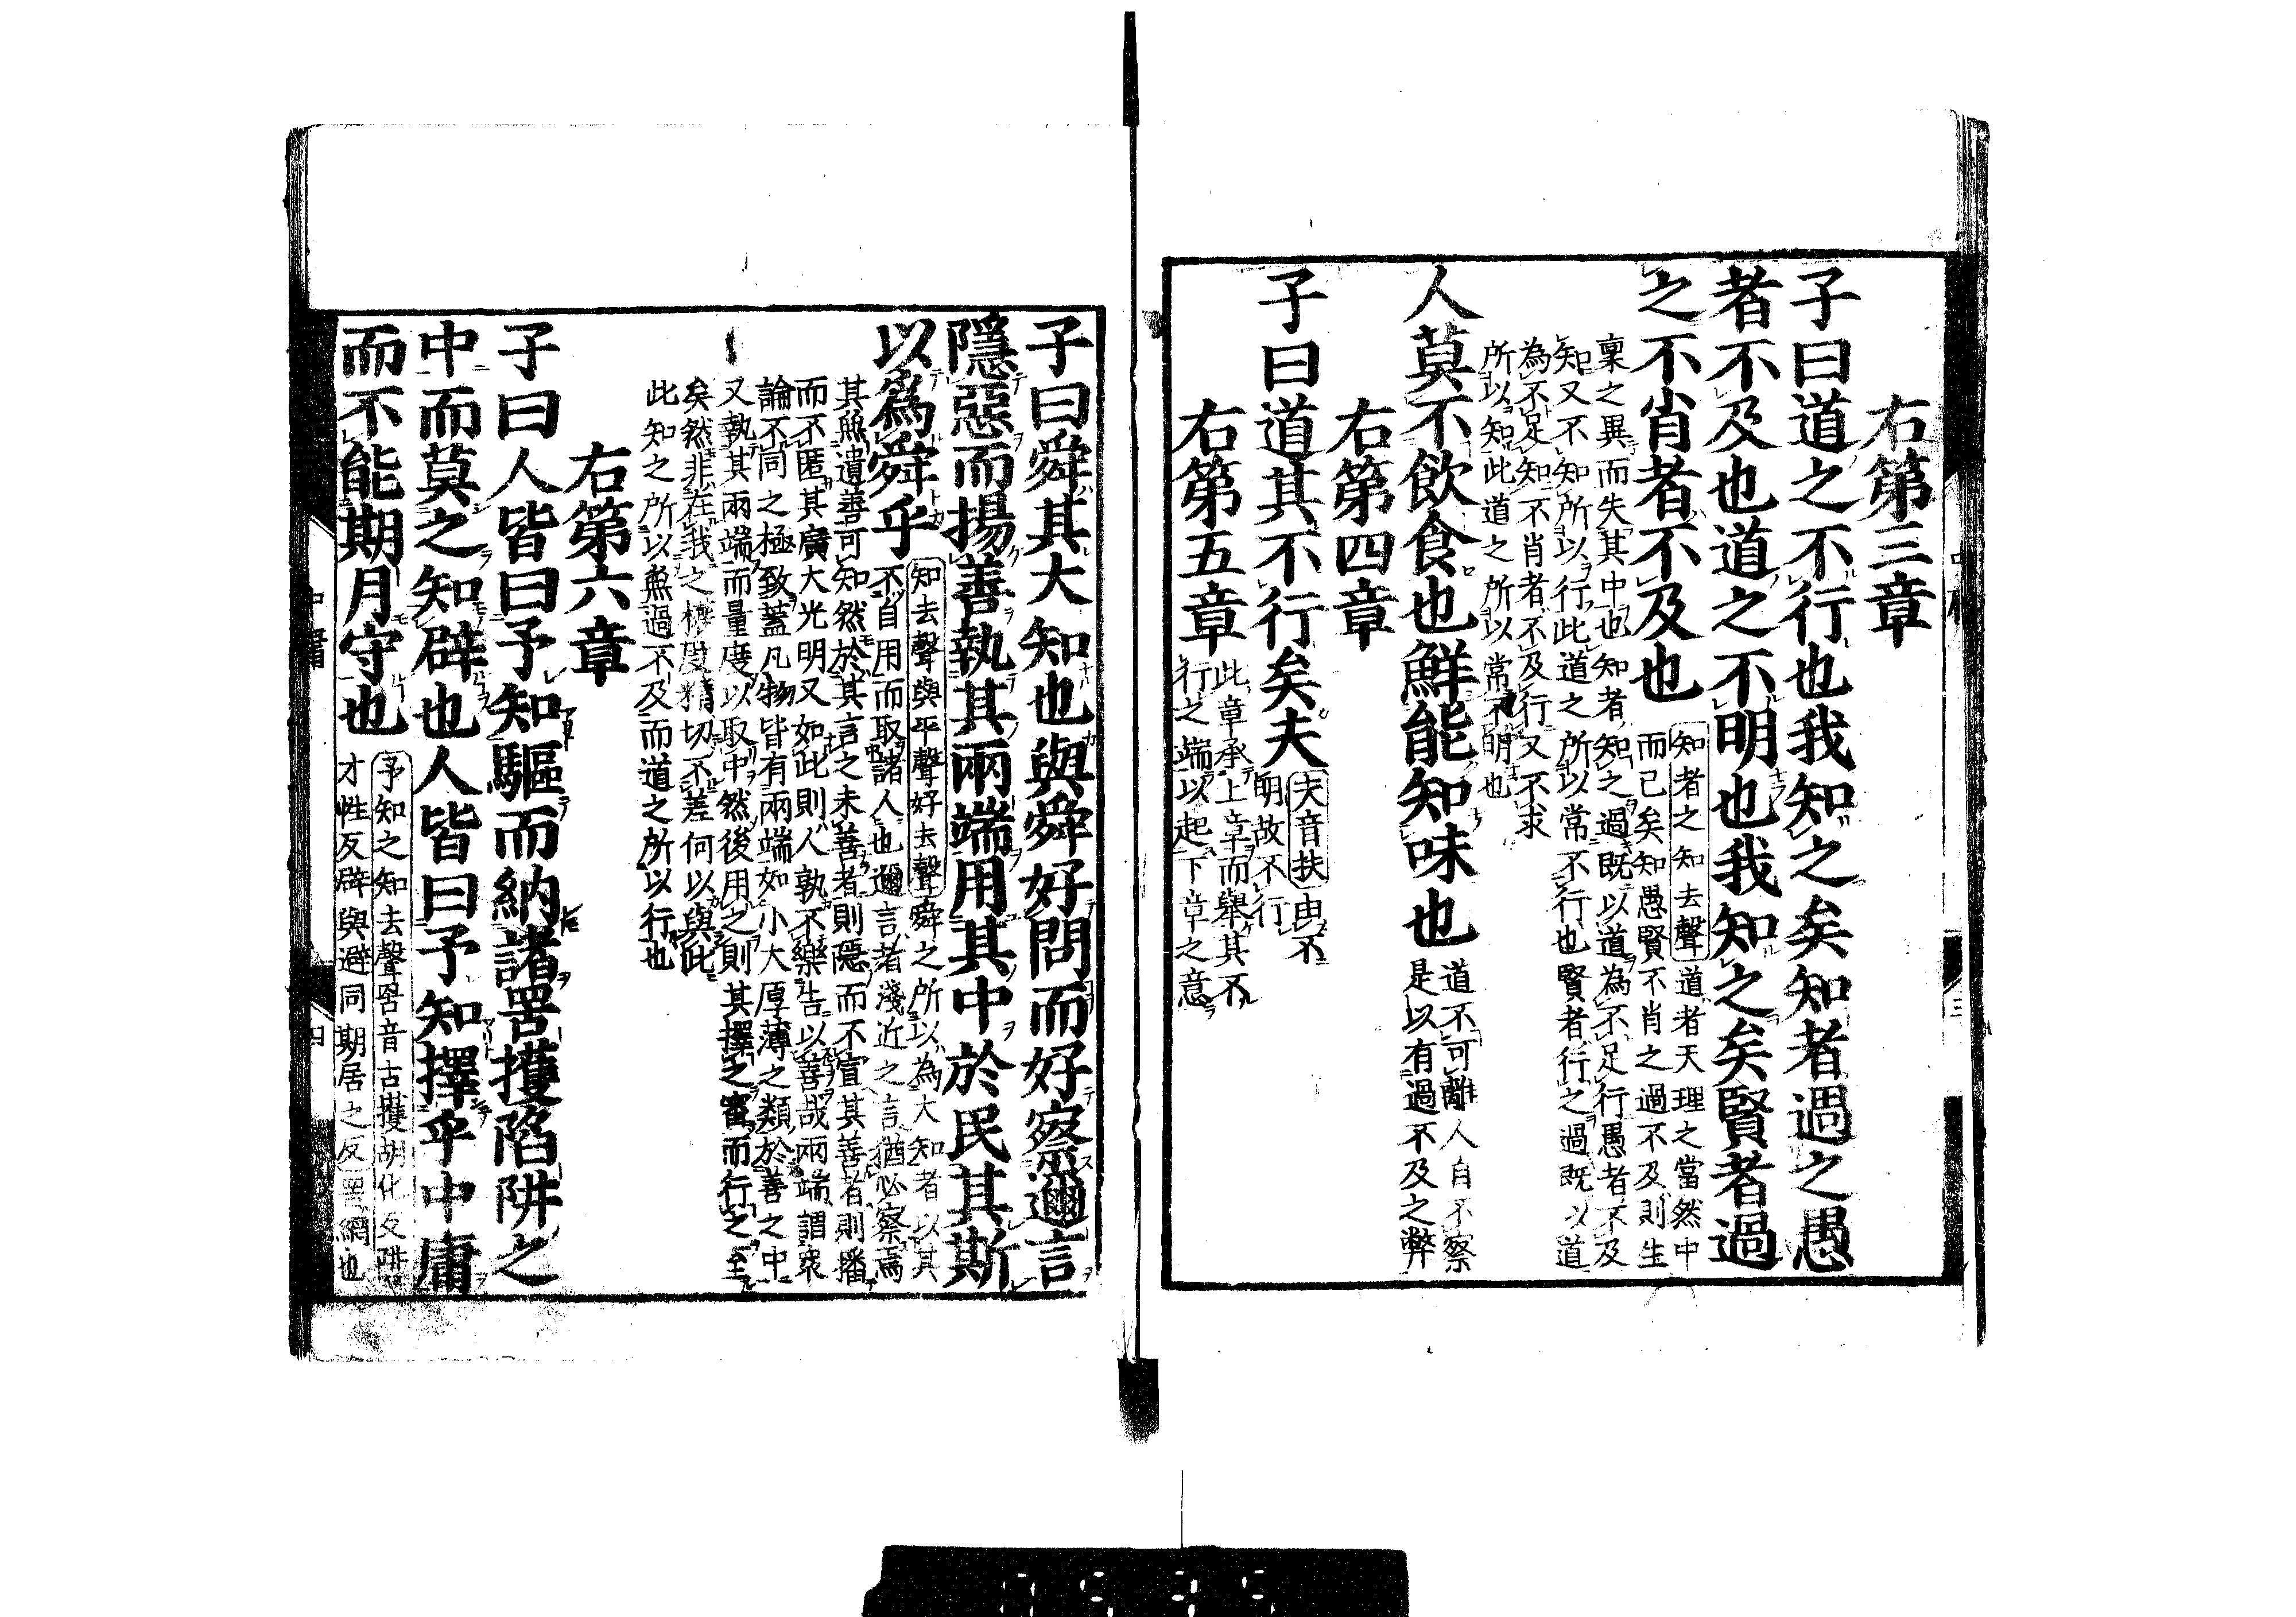 右第三章
子曰道之不行也我知之矣知者過之愚
者不及也道之不明也我知之矣賢者過
之不肖者不及也
知者之知去聲道者天理之當然中
而已矣知愚賢不肖之過不及則生
稟之異而失其中也知者知之過既以道為不足行愚者不及
知又不知所以行此道之所以常不行也賢者行之過既以道
為不足知不肖者不及行又不求
所以知此道之所以常不明也
人莫不飲食也鮮能知味也
道不可離人自不察
是以有過不及之弊
右第四章
子曰道其不行矣夫
夫音扶由不
明故不行
右第五章
此章承上章而舉其不
行之端以起下章之意
子曰舜其大知也與舜好問而好察邇言
隱惡而揚善執其兩端用其中於民其斯
以爲舜乎
知去聲與平聲好去聲舜之所以為大知者以其
不自用而取諸人也邇言者淺近之言猶必察焉
其無遺善可知然於其言之未善者則隱而不宣其善者則播
而不匿其廣大光明又如此則人孰不樂告以善哉兩端謂衆
論不同之極致蓋凡物皆有兩端如小大厚薄之類於善之中
又執其兩端而量度以取中然後用之則其擇之審而行之至
矣然非在我之權度精切不差何以與此
此知之所以無過不及而道之所以行也
右第六章
子曰人皆曰予知驅而納諸罟擭陷阱之
中而莫之知辟也人皆曰予知擇乎中庸
而不能期月守也
予知之知去聲罟音古擭胡化反阱
才性反辟與避同期居之反罟網也
中庸
四
三